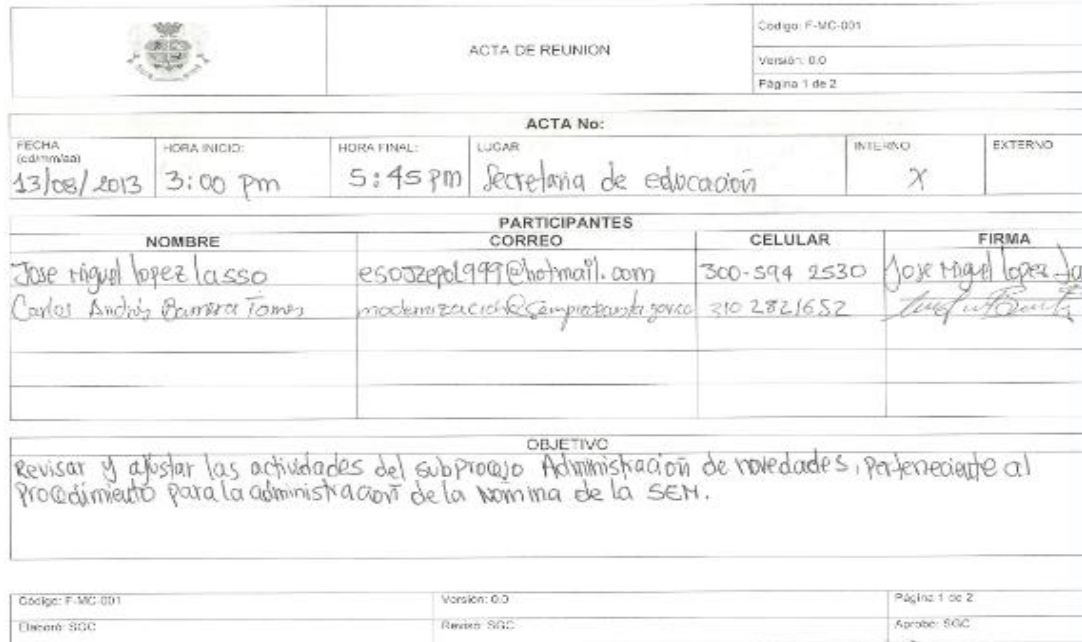 ACTA DE REUNION
Código: F-MC-001
Versión: 0.0
Página 1 de 2
ACTA No:
FECHA (dd/mm/aa) HORA INICIO: HORA FINAL: LUGAR INTERNO EXTERNO
13/08/2013 3:00 Pm 5:45 PM Secretaria de educación X
PARTICIPANTES
NOMBRE CORREO CELULAR FIRMA
Jose Miguel lopez lasso esojzepol999@hotmail.com 300-594 2530 Jose Miguel lopez
Carlos Andrés 310 2821652
OBJETIVO
Revisar y ajustar las actividades del subproceso Administración de novedades, perteneciente al
Procedimiento para la administración de la Nomina de la SEM.
Código: F-MC-001 Versión: 0.0 Página 1 de 2
Elaboró: SGC Revisó: SGC Aprobó: SGC